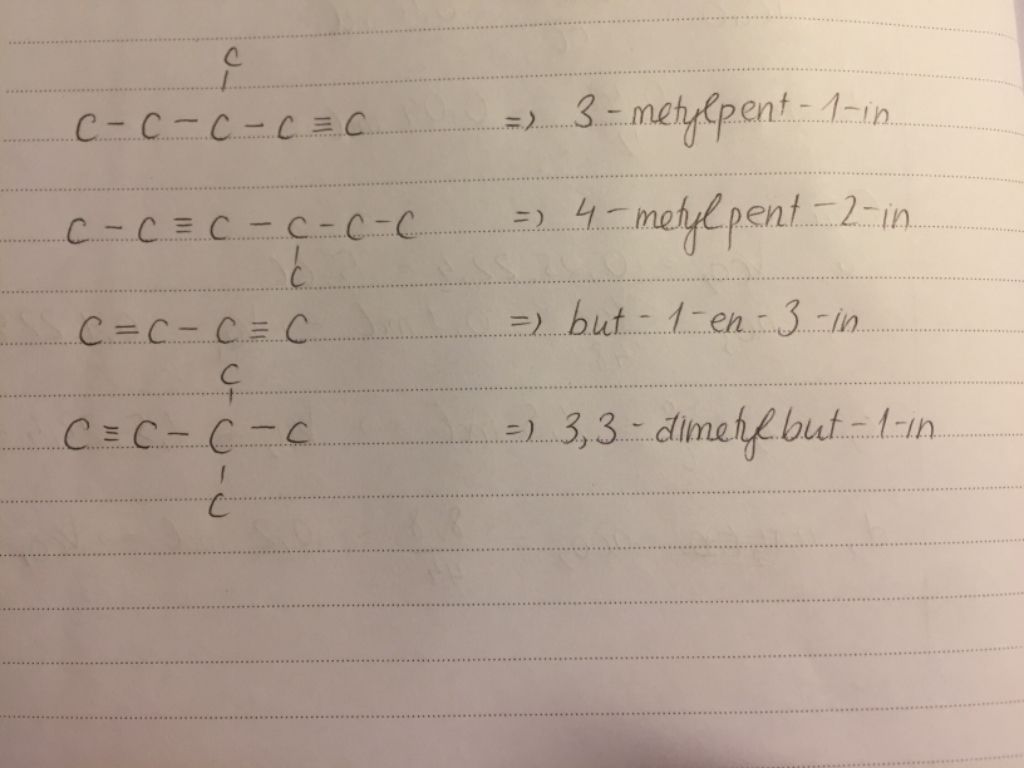 C
C - C - C - C ≡ C => 3 - metylpent - 1 - in
C - C ≡ C - C - C - C => 4 - metylpent - 2 - in
C
C = C - C ≡ C => but - 1 - en - 3 - in
C
C ≡ C - C - C => 3,3 - dimetylbut - 1 - in
C